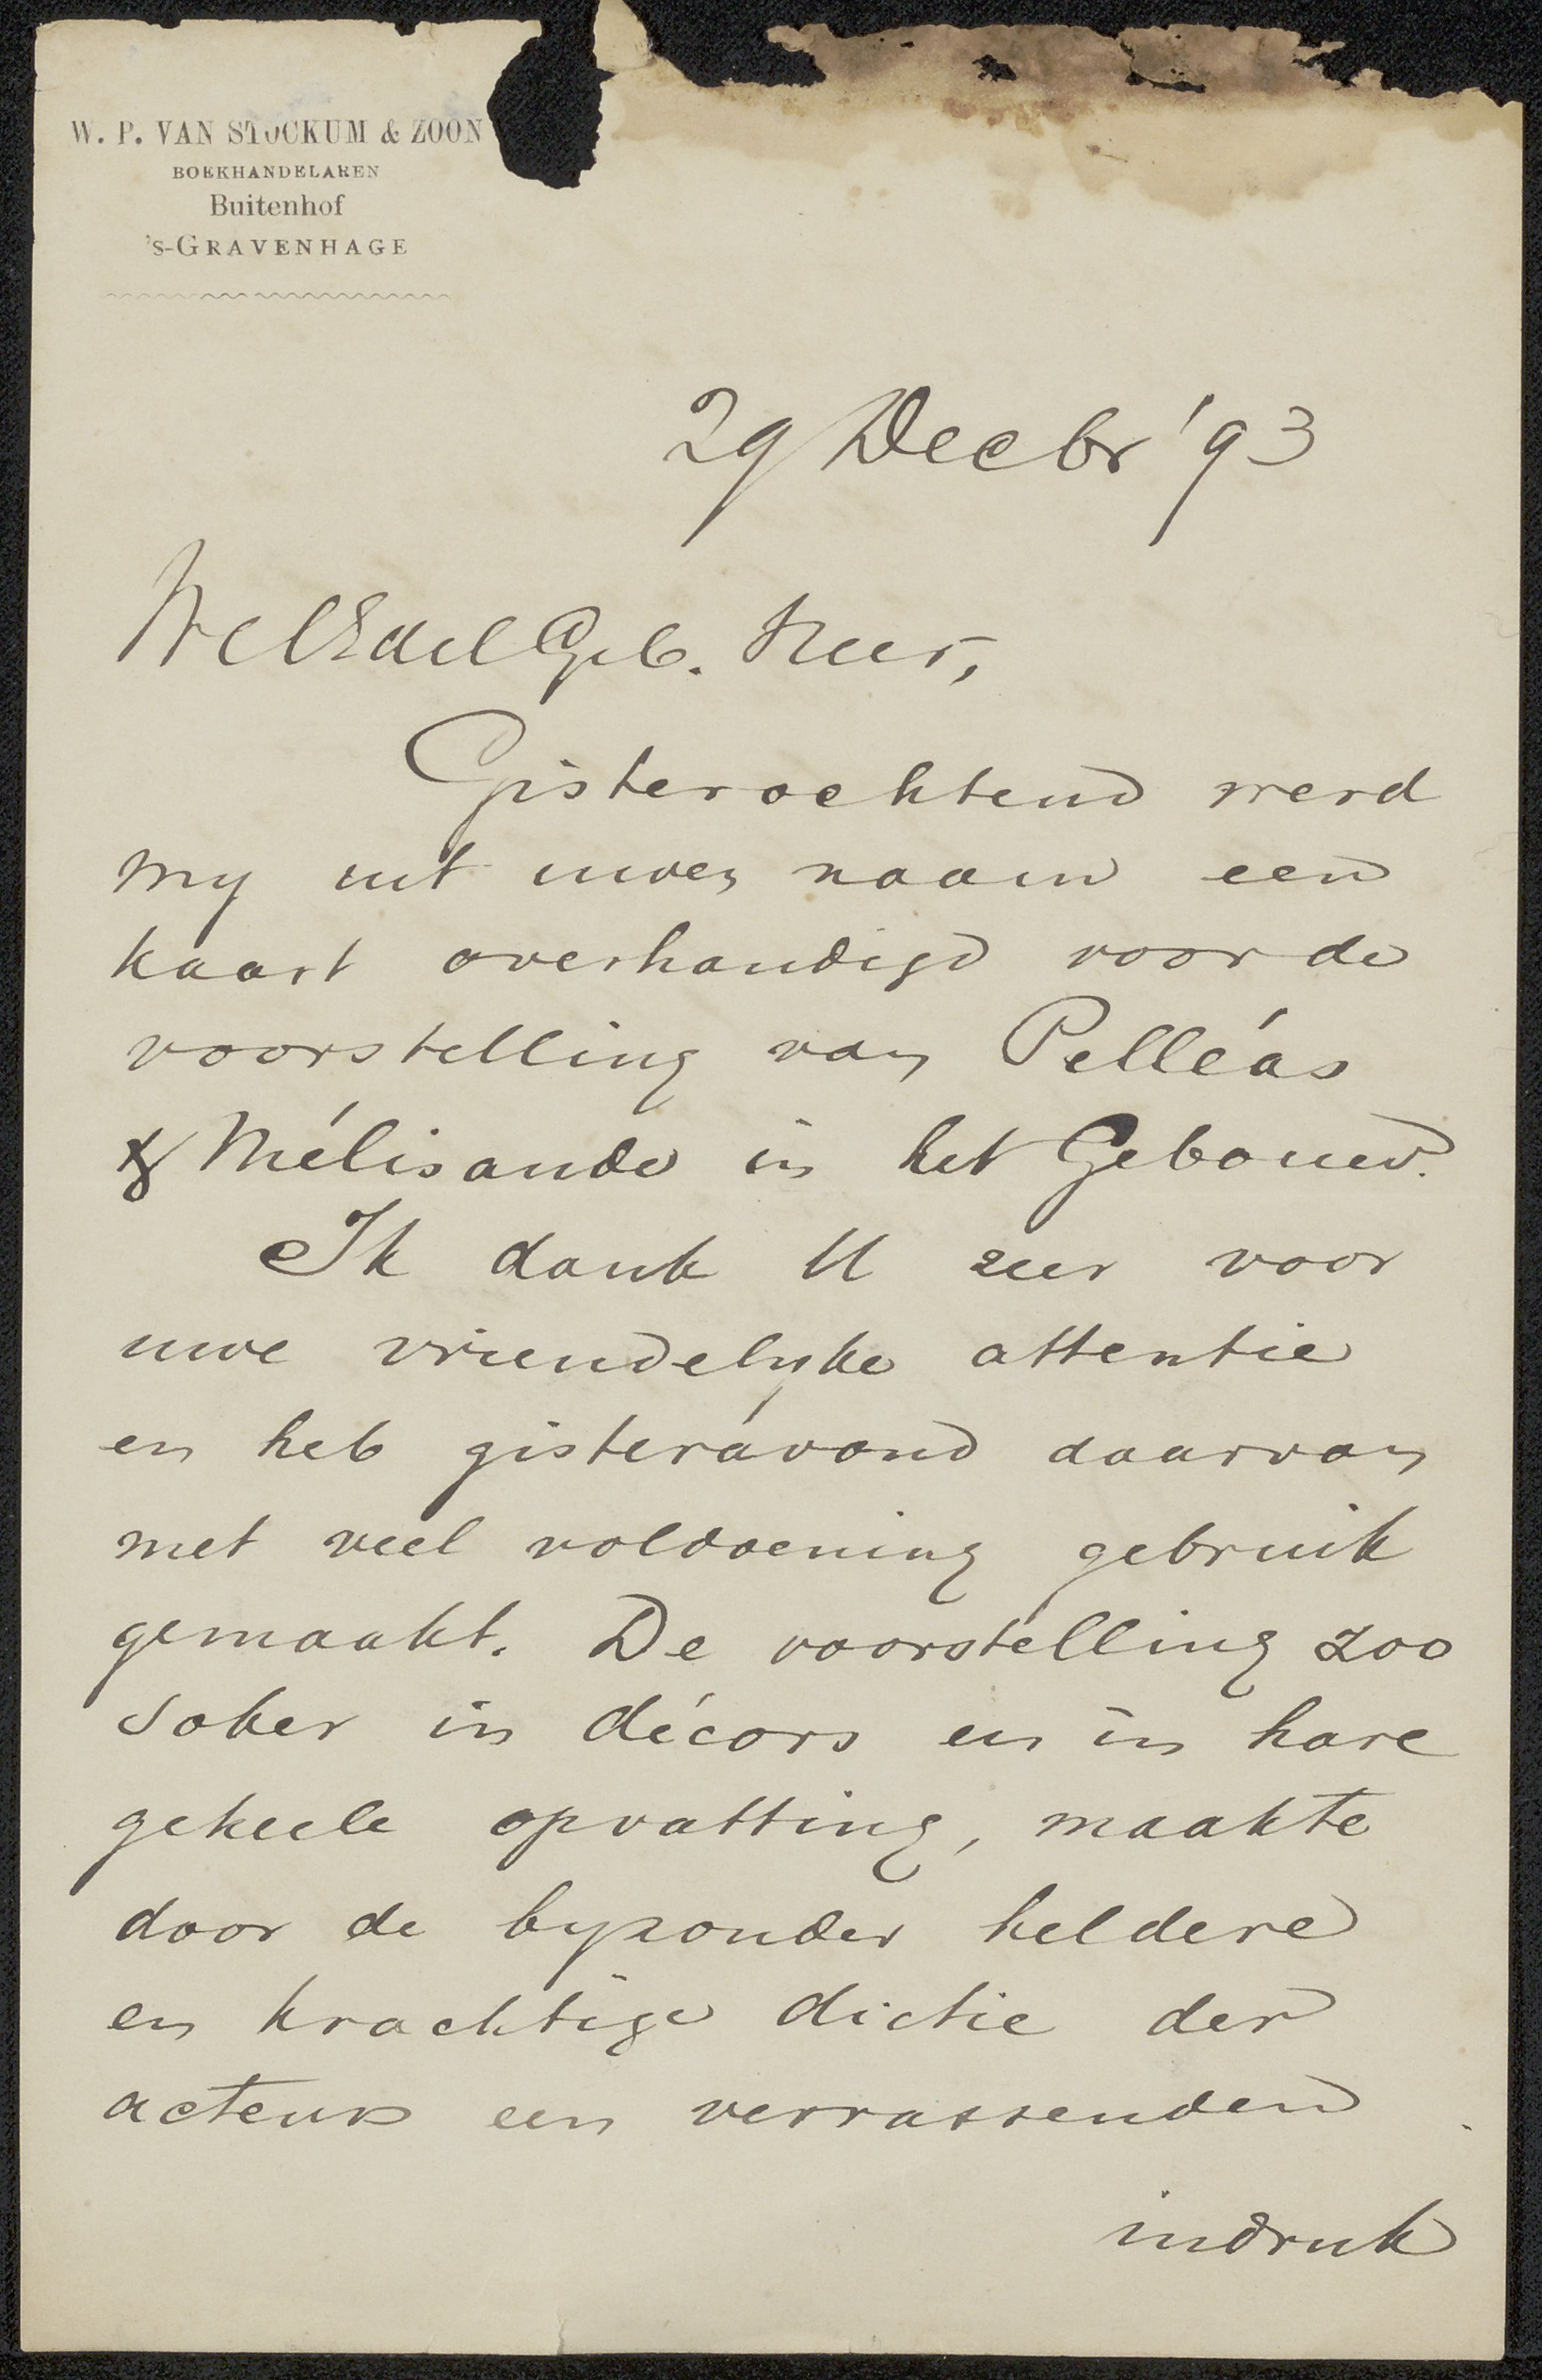 W. P. VAN STOCKUM & ZOON
BOEKHANDELAREN
Buitenhof
's-GRAVENHAGE
29 Decbr '93
WelEdelGeb. Heer,
Gisterochtend werd
my uit uwen naam een
kaart overhandigd voor de
voorstelling van Pelléas
& Mélisande in het Gebouw.
Ik dank U zeer voor
uwe vriendelyke attentie
en heb gisteravond daarvan
met veel voldoening gebruik
gemaakt. De voorstelling zoo
sober in décors en in hare
geheele opvatting, maakte
door de byzonder heldere
en krachtige dictie der
acteurs een verrassenden
indruk